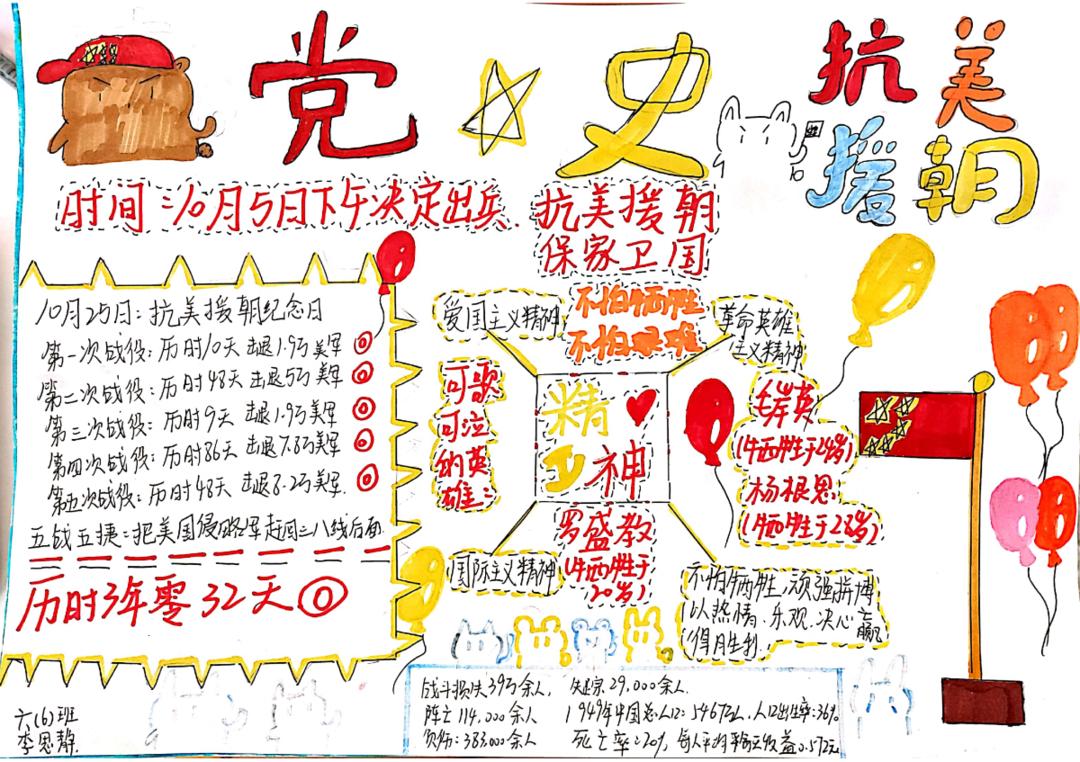 党史
抗美
援朝
时间:10月5日下午决定出兵
抗美援朝
保家卫国
10月25日:抗美援朝纪念日
第一次战役:历时10天 击退1.5万美军
第二次战役:历时48天 击退5万美军
第三次战役:历时9天 击退1.9万美军
第四次战役:历时86天 击退7.8万美军
第五次战役:历时48天 击退8.2万美军.
五战五捷:把美国侵略军赶回三八线后面.
历时3年零32天
爱国主义精神
不怕牺牲
不怕艰难
革命英雄
主义精神
可歌
可泣
的英
雄:
精
神
毛岸英
(牺牲于28岁)
杨根思
(牺牲于28岁)
罗盛教
(牺牲于
20岁)
国际主义精神
不怕牺牲、顽强拼搏
以热情、乐观、决心赢
得月生利.
战斗损失39万余人,失踪29,000余人.
阵亡114,000余人
负伤:383,000余人
1949年中国总人口:5467亿人,人口出生率:36%
死亡率:20%,每人平均
六(6)班
李思静.